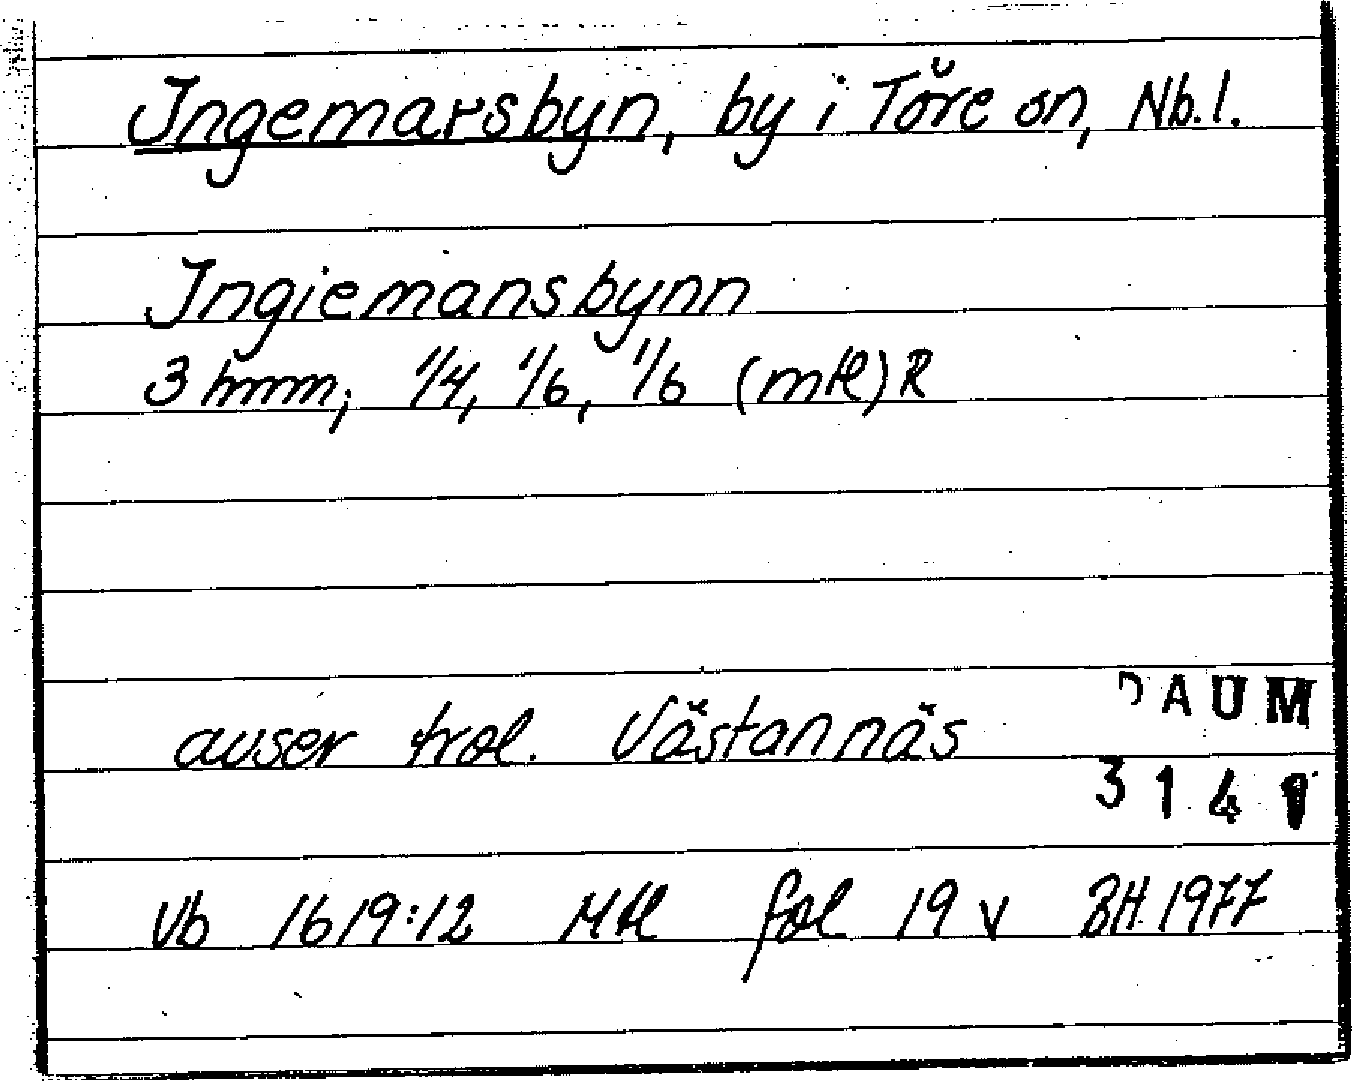 Ingemarsbyn, by i Töre sn, Nb.l.
Ingiemansbynn
3 hmm; 1/4, 1/6, 1/6 (mtl) R
avser trol. Västannäs
DAUM
314
Vb 1619:12 Mtl fol 19 v BH 1977